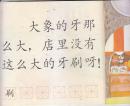 大象的牙那
么大，店里没有
这么大的牙刷呀！
刷